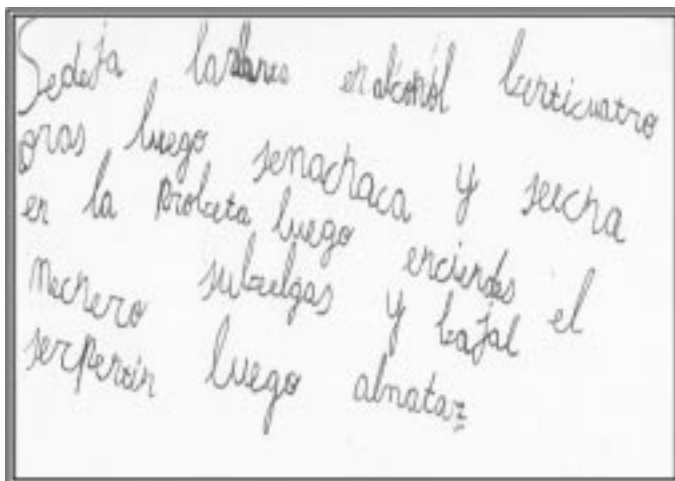 Sedeja en alcohól beinticuatro
oras luego semachaca y seecha
en la probeta luego enciendes el
mechero subeelgas y bajal
serpentin luego almataz